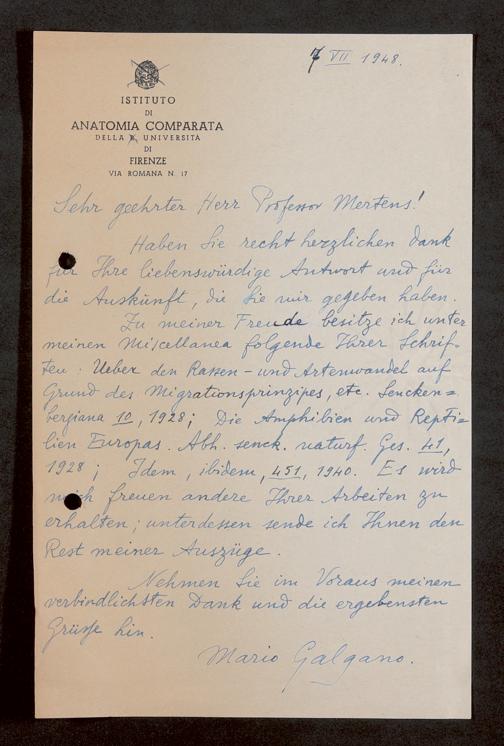 7 VII 1948.
ISTITUTO
DI
ANATOMIA COMPARATA
DELLA R. UNIVERSITÀ
DI
FIRENZE
VIA ROMANA N. 17
Sehr geehrter Herr Professor Mertens!
Haben Sie recht herzlichen Dank
für Ihre liebenswürdige Antwort und für
die Auskünft, die Sie mir gegeben haben.
Zu meiner Freude besitze ich unter
meinen Miscellanea folgende Ihrer Schrif-
ten: Ueber den Rassen- und Artenwandel auf
Grund des Migrationsprinzipes, etc. Sencken=
bergiana 10, 1928; Die Amphibien und Repti=
lien Europas. Abh. senck. naturf. Ges. 41,
1928; Idem, ibidem, 451, 1940. Es wird
mich freuen andere Ihrer Arbeiten zu
erhalten; unterdessen sende ich Ihnen den
Rest meiner Auszüge.
Nehmen Sie im Voraus meinen
verbindlichsten Dank und die ergebensten
Grüsse hin.
Mario Galgano.